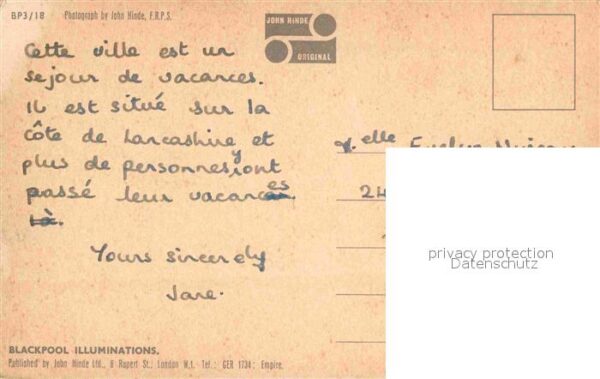 BP3/18 Photograph by John Hinde, F.R.P.S.
JOHN HINDE
ORIGINAL
Cette ville est un
sejour de vacances.
Il est situé sur la
côte de Lancashire et
plus de personnes y ont
passé leur vacances.
là.
Yours sincerely
Jane.
elle Evelyn
24
privacy protection
Datenschutz
BLACKPOOL ILLUMINATIONS.
Published by John Hinde Ltd., 8 Rupert St., London W.1. Tel.: GER 1734: Empire.